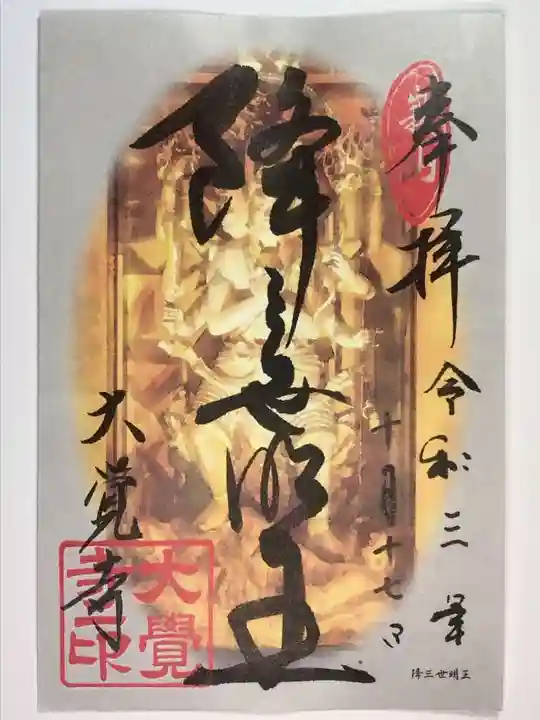 奉拝
令和三年
十月十七日
降三世明王
大覚寺
大覺寺印
降三世明王